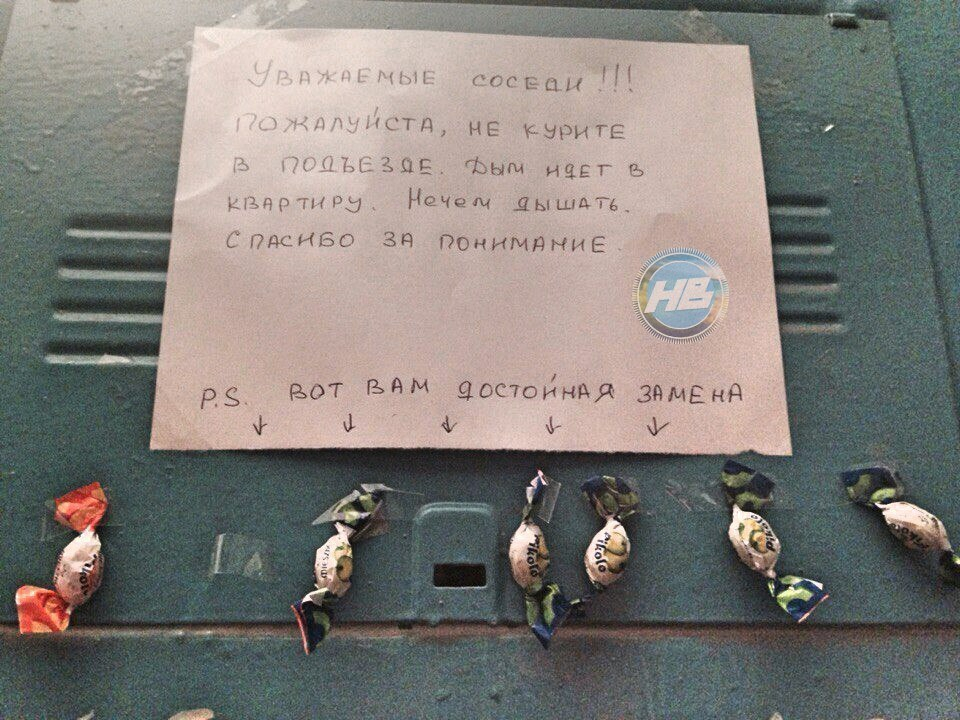 Уважаемые соседи!!!
Пожалуйста, не курите
в подъезде. Дым идет в
квартиру. Нечем дышать.
Спасибо за понимание.
НВ
P.S. Вот вам достойная замена
↓ ↓ ↓ ↓ ↓
Pikolo
Pikolo
Pikolo
Pikolo